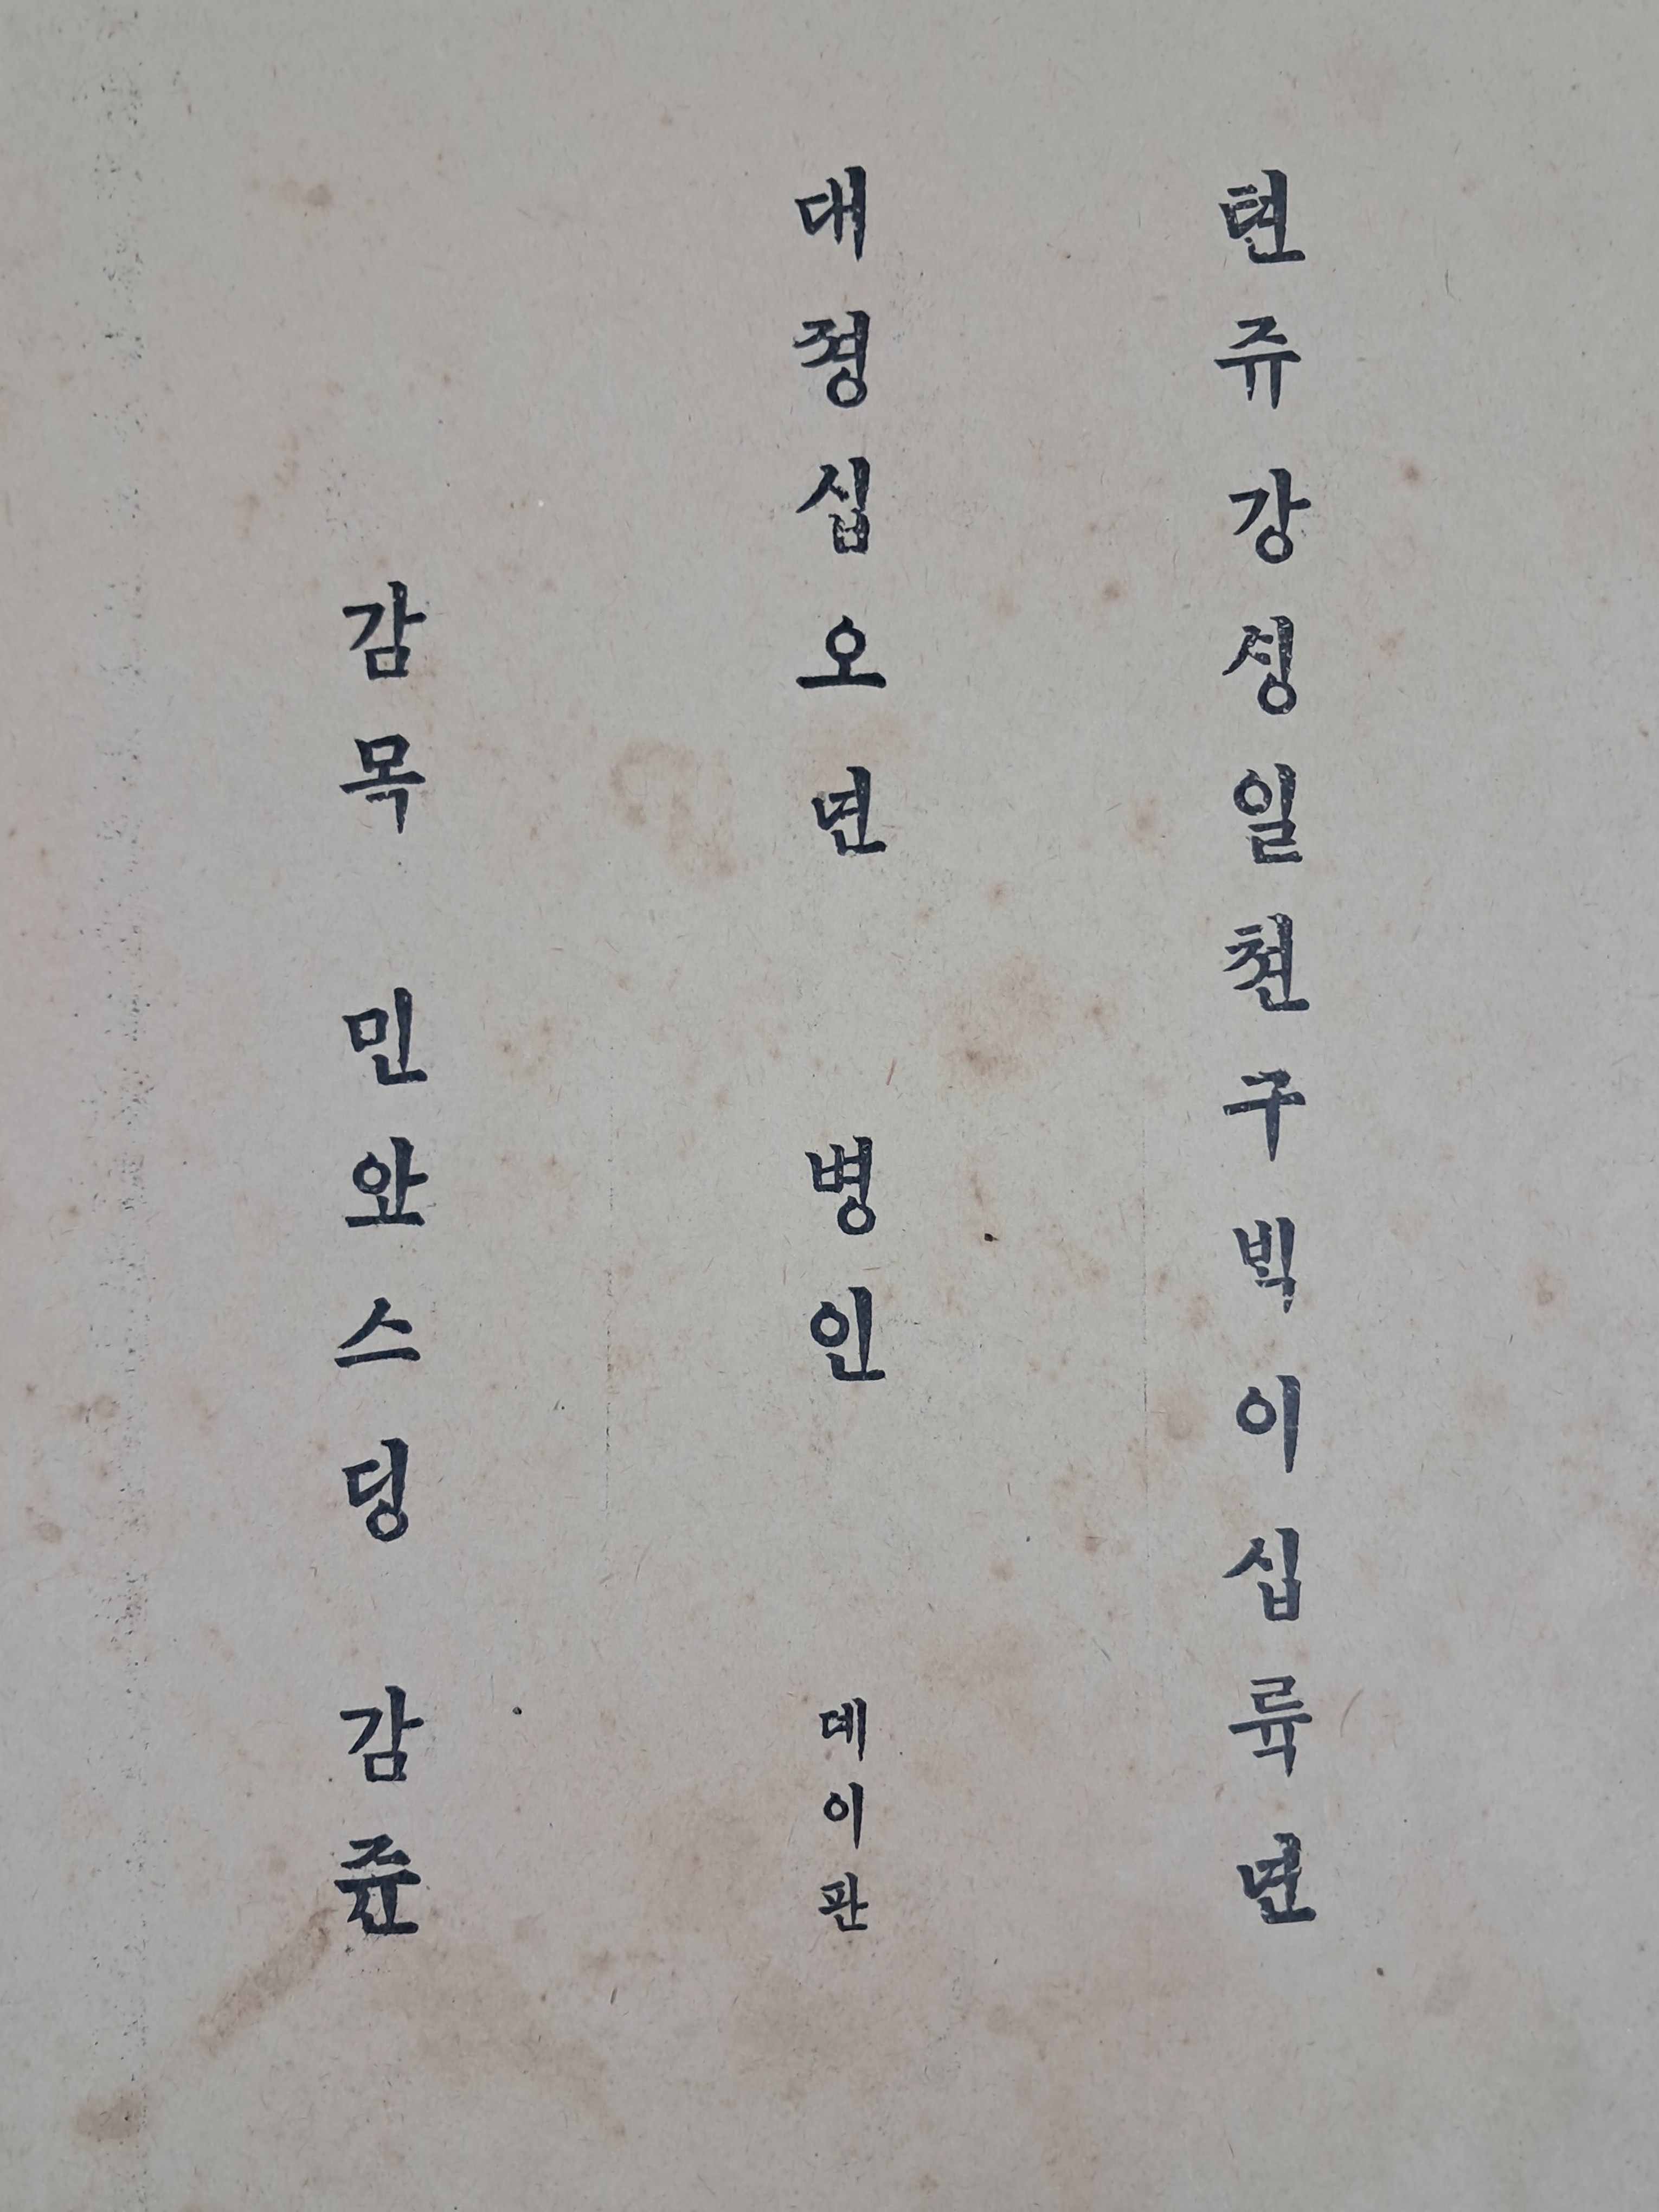 텬쥬강셩일쳔구빅이십륙년
대졍십오년 병인 뎨이판
감목 민ᄋᅶ스딩 감쥰